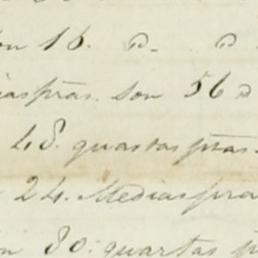 on 16. D. D
dias pzas. son 56 D
48. quartas pzas.
24. Medias pza
on 80. quartas p